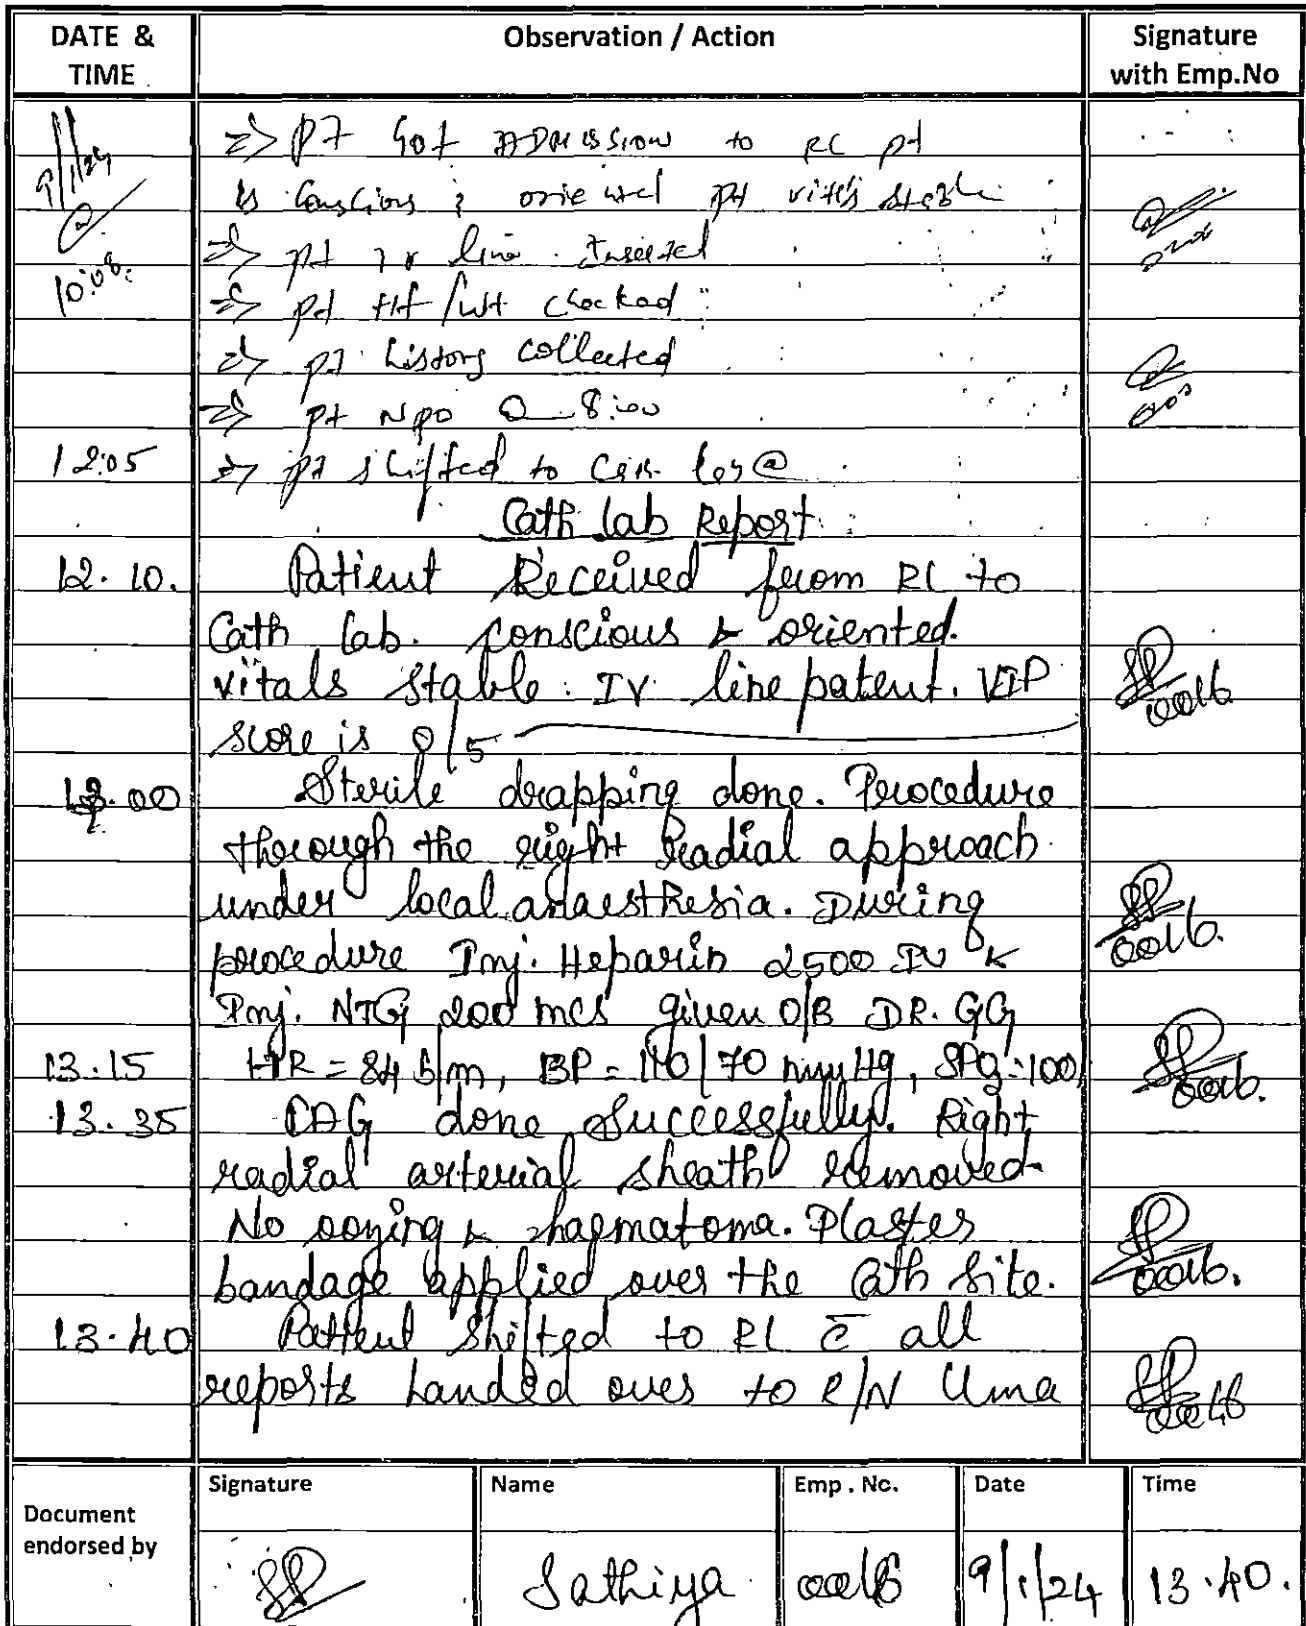 DATE & TIME
Observation / Action
Signature with Emp.No
9/1/24
@
10:08.
=> pt Got ADMISSION to RC pt
is Conscious & oriented pt vitals stable
=> pt IV line Inserted
=> pt Ht/Wt checked
=> pt history collected
=> pt NPO @ 8:00
12:05
=> pt shifted to
Cath lab Report
12.10.
Patient Received from RL to
Cath lab. conscious & oriented.
vitals stable. IV line patent. VIP
score is 0/5
0016
13.00
Sterile drapping done. Procedure
through the right radial approach
under local anaesthesia. During
procedure Inj. Heparin 2500 IU &
0016.
Inj. NTG 200 mcs given O/B DR. GG
13.15
HR = 84 b/m, BP = 110/70 mmHg, SPO2:100
0016.
13.35
CAG done successfully. Right
radial arterial sheath removed
No oozing & haematoma. Plaster
bandage applied over the Cath site.
0016.
13.40
Patient shifted to RL c̄ all
reports handed over to R/N Uma
0016
Document endorsed by
Signature
Name
Emp. No.
Date
Time
Sathiya
0016
9/1/24
13.40.